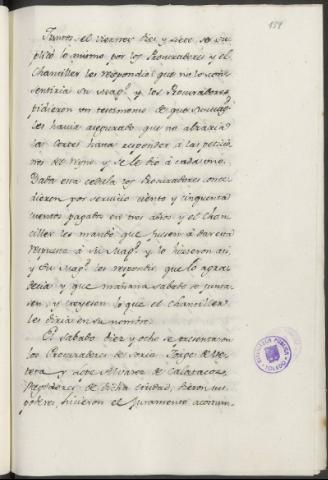 159
Juntos el viernes diez y siete se su
plicó lo mismo por los Procuradores y el
Chanciller les respondió que no lo con
sentiria su Mag.d y los Procuradores
pidieron un testimonio de que su mag.d
les havia asegurado que no alzaria
las Cortes hasta responder á las peticio
nes del Reyno y se le dió á cada uno.
Dada esta cedula los Procuradores conce
dieron por servicio ciento y cinquenta
cuentos pagados en tres años y el Chan
ciller les mandó que fuesen á dar esta
respuesta á su Mag.d y lo hicieron asi
y su Mag.d les respondió que lo agra
decia y que mañana sabado se juntá
sen y creyesen lo que el Chanciller
les diria en su nombre.
El sabado diez y ocho se presentaron
los Procuradores de Soria Jorge de
y Alvarez de
de dicha ciudad, dieron sus
poderes hicieron el juramento acostum-
BIBLIOTECA PUBLICA
TOLEDO